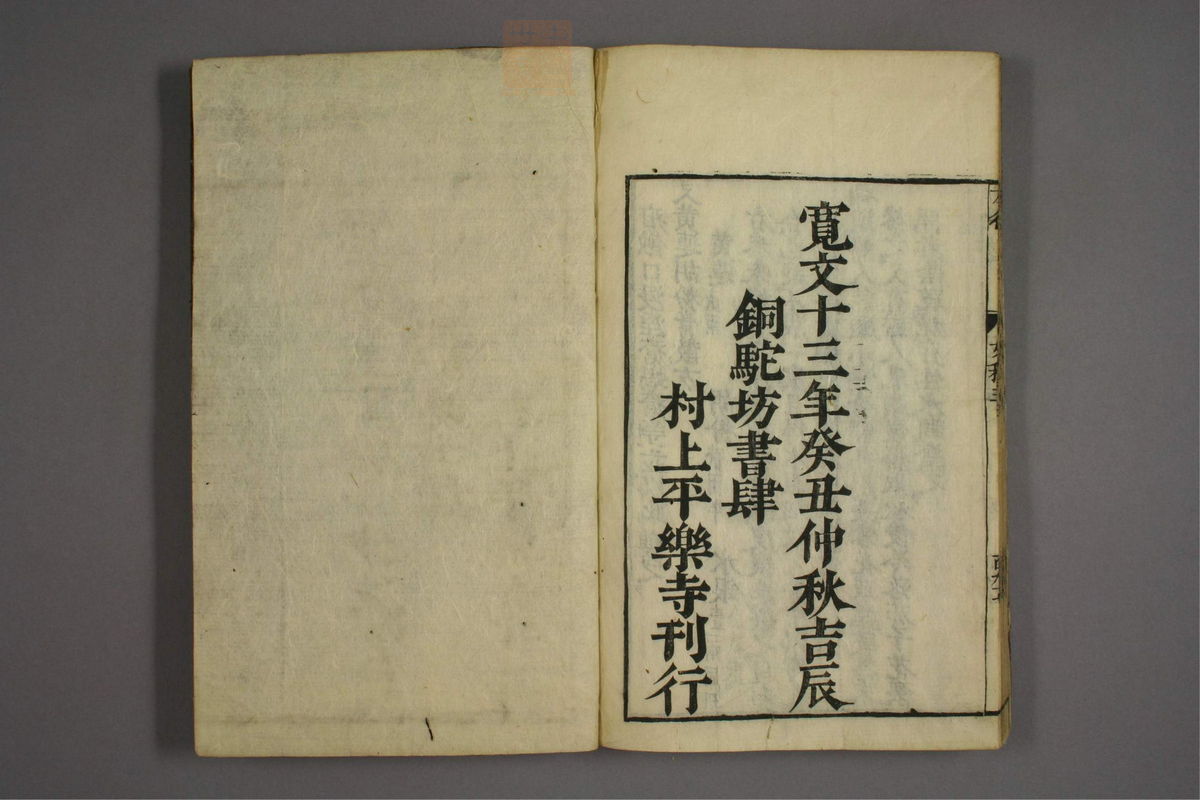 寛文十三年癸丑仲秋吉辰
銅駝坊書肆
村上平樂寺刊行